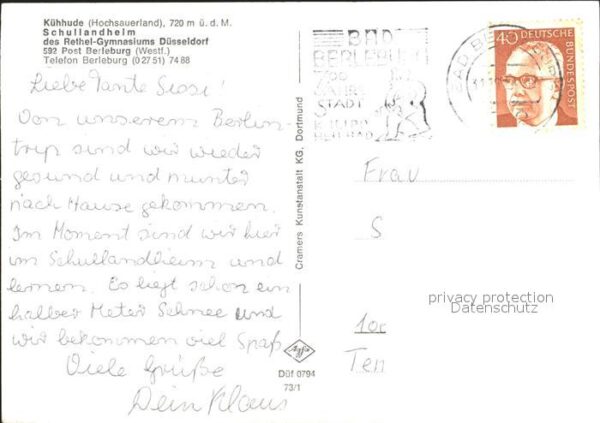 Kühhude (Hochsauerland), 720 m ü. d. M.
Schullandheim
des Rethel-Gymnasiums Düsseldorf
592 Post Berleburg (Westf.)
Telefon Berleburg (0 27 51) 74 88
Liebe Tante Sissi!
Von unserem Berlin-
trip sind wir wieder
gesund und munter
nach Hause gekommen.
Im Moment sind wir hier
im Schullandheim und
lernen. Es liegt schon ein
halber Meter Schnee und
wir bekommen viel Spaß
Viele Grüße
Dein Klaus
Cramers Kunstanstalt KG, Dortmund
Agfa
Düf 0794
73/1
BAD
BERLEBURG
700
JAHRE
STADT
BAD BE
40
DEUTSCHE
BUNDESPOST
Frau
S
privacy protection
Datenschutz
1oc
Ten